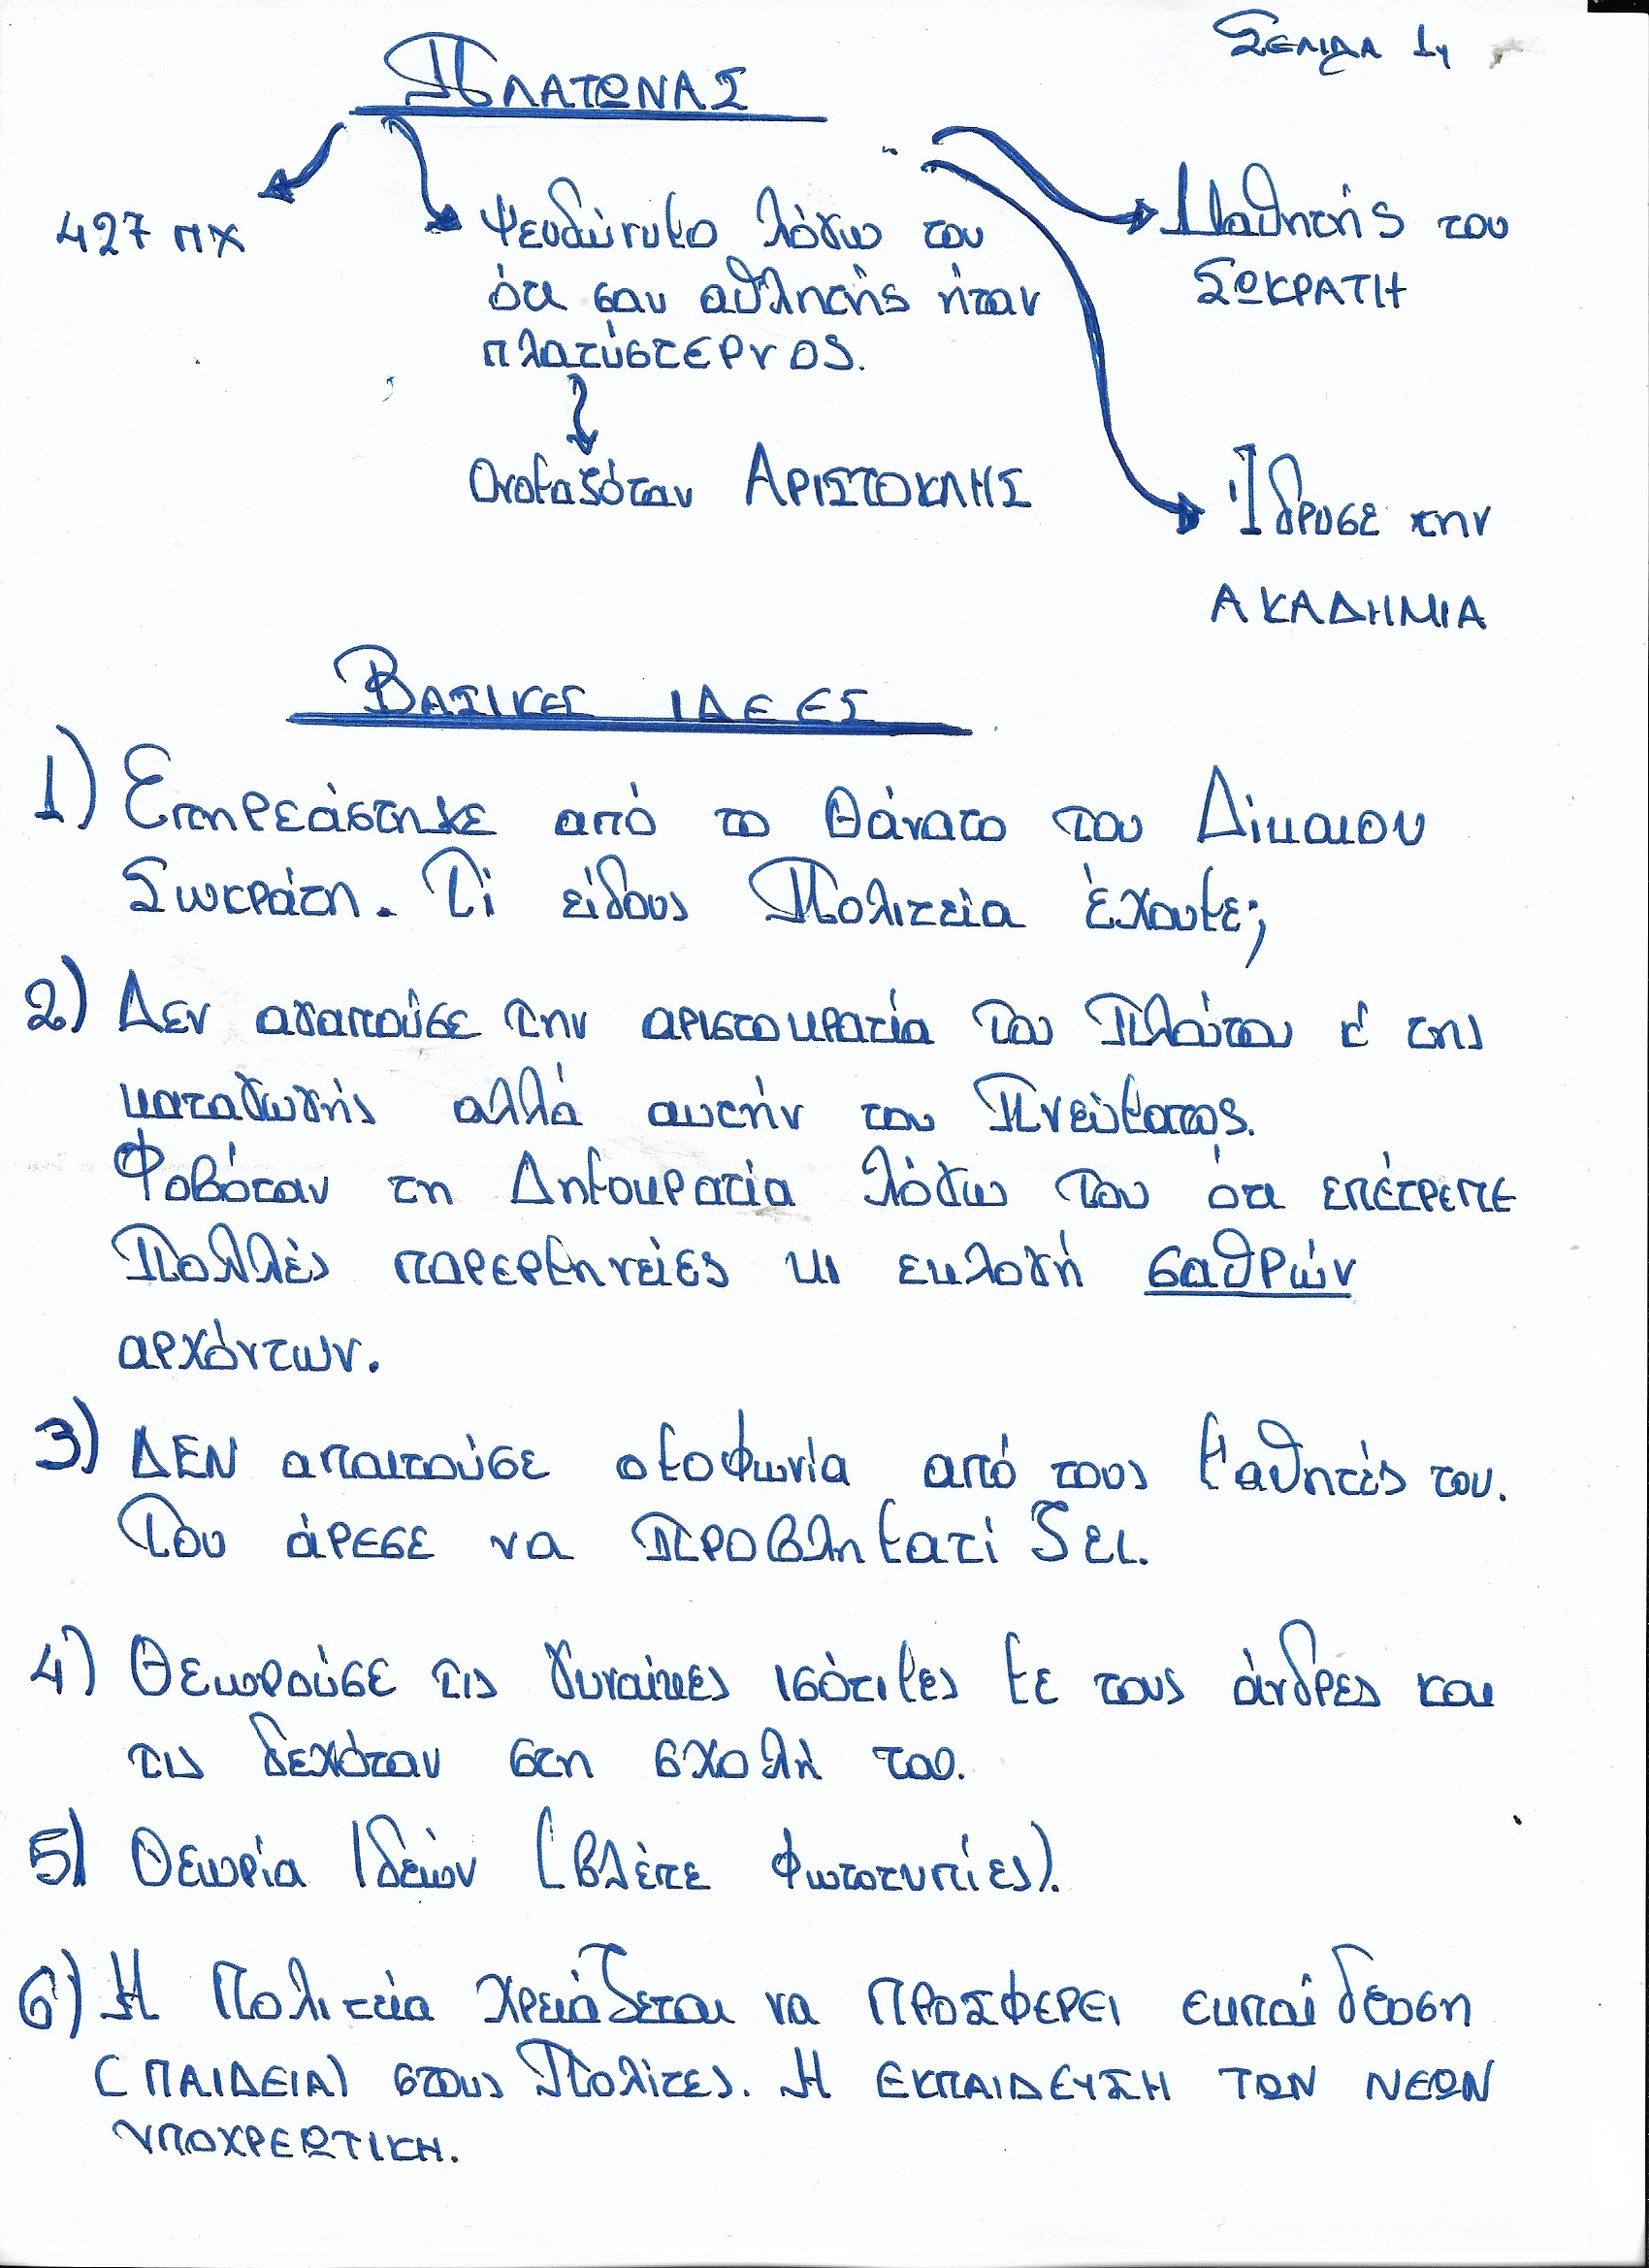 Σελίδα 1η
ΠΛΑΤΩΝΑΣ
427 πχ
Ψευδώνυμο λόγω του
ότι σαν αθλητής ήταν
πλατύστερνος.
Ονομαζόταν ΑΡΙΣΤΟΚΛΗΣ
Μαθητής του
ΣΩΚΡΑΤΗ
Ίδρυσε την
ΑΚΑΔΗΜΙΑ
ΒΑΣΙΚΕΣ ΙΔΕΕΣ
1) Επηρεάστηκε από το θάνατο του Δίκαιου
Σωκράτη. Τί είδους Πολιτεία έχουμε;
2) Δεν αγαπούσε την αριστοκρατία του Πλούτου κ' της
καταγωγής αλλά αυτήν του Πνεύματος.
Φοβόταν τη Δημοκρατία λόγω του ότι επέτρεπε
Πολλές παρερμηνείες κι εκλογή σαθρών
αρχόντων.
3) ΔΕΝ απαιτούσε ομοφωνία από τους μαθητές του.
Του άρεσε να Προβληματίζει.
4) Θεωρούσε τις γυναίκες ισότιμες με τους άνδρες και
τις δεχόταν στη σχολή του.
5) Θεωρία Ιδεών (βλέπε Φωτοτυπίες).
6) Η Πολιτεία χρειάζεται να ΠΡΟΣΦΕΡΕΙ εκπαίδευση
(ΠΑΙΔΕΙΑ) στους Πολίτες. Η ΕΚΠΑΙΔΕΥΣΗ ΤΩΝ ΝΕΩΝ
ΥΠΟΧΡΕΩΤΙΚΗ.